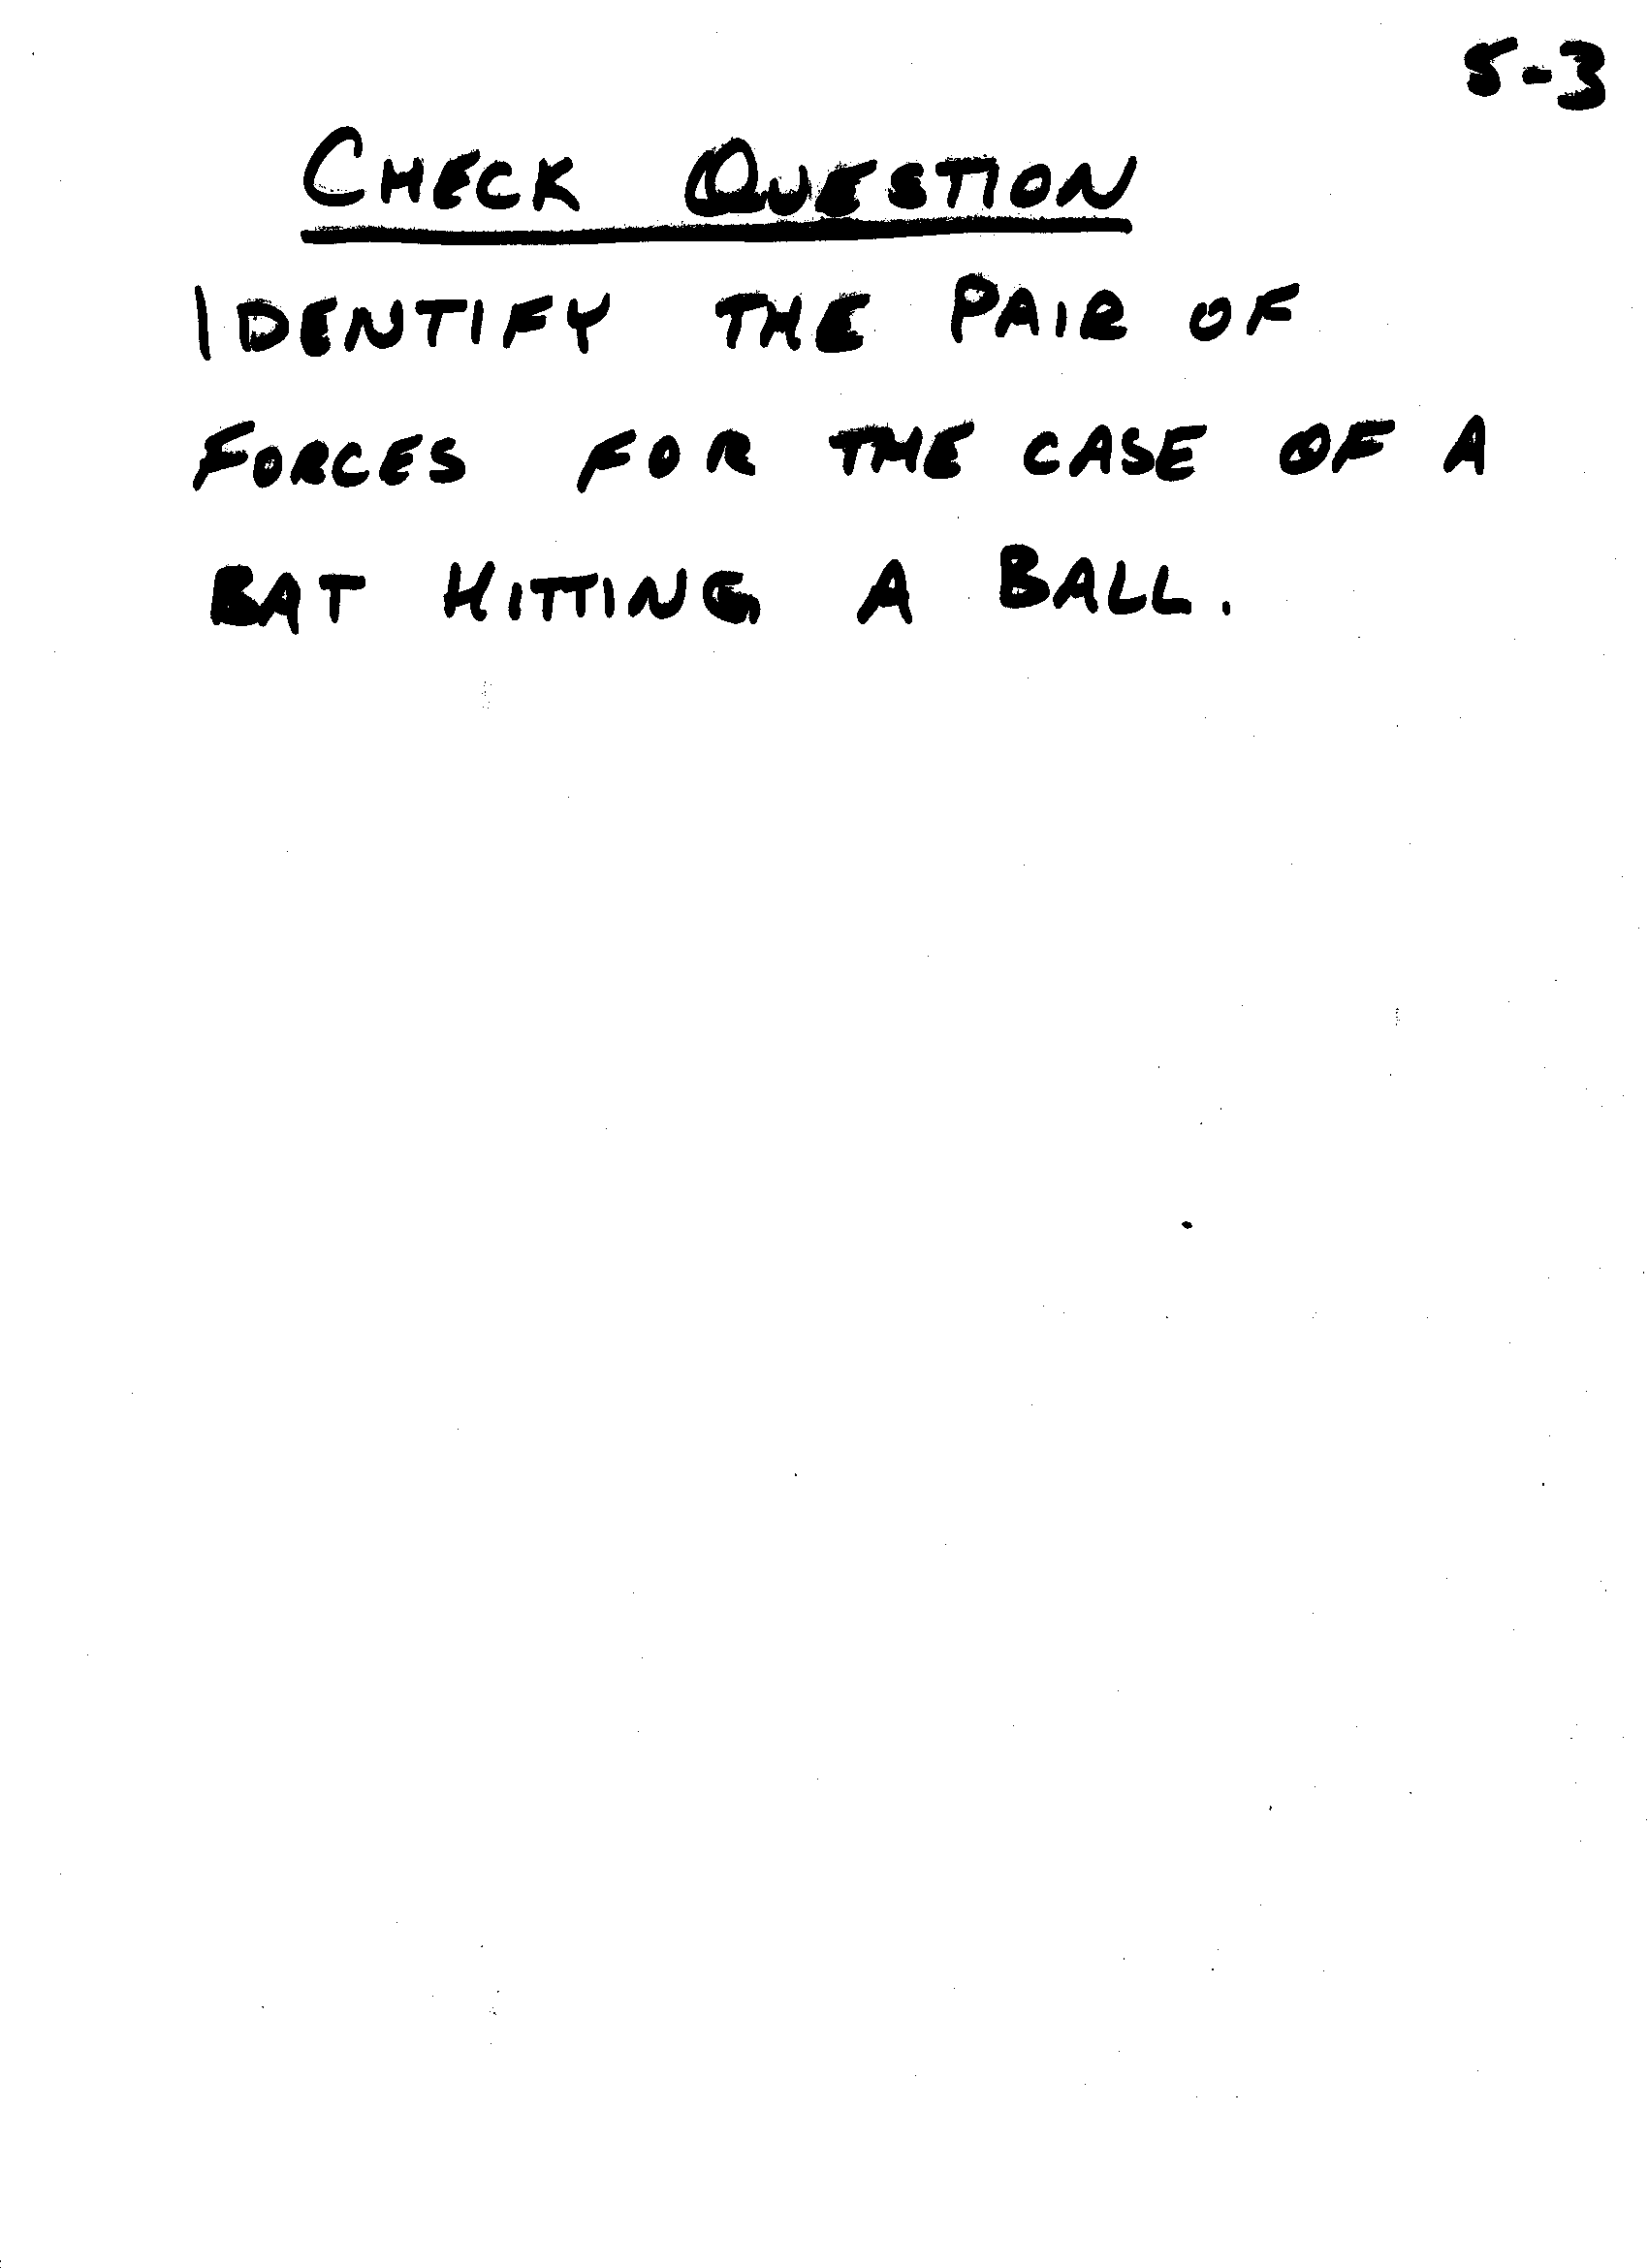 5-3
CHECK QUESTION
IDENTIFY THE PAIR OF
FORCES FOR THE CASE OF A
BAT HITTING A BALL.